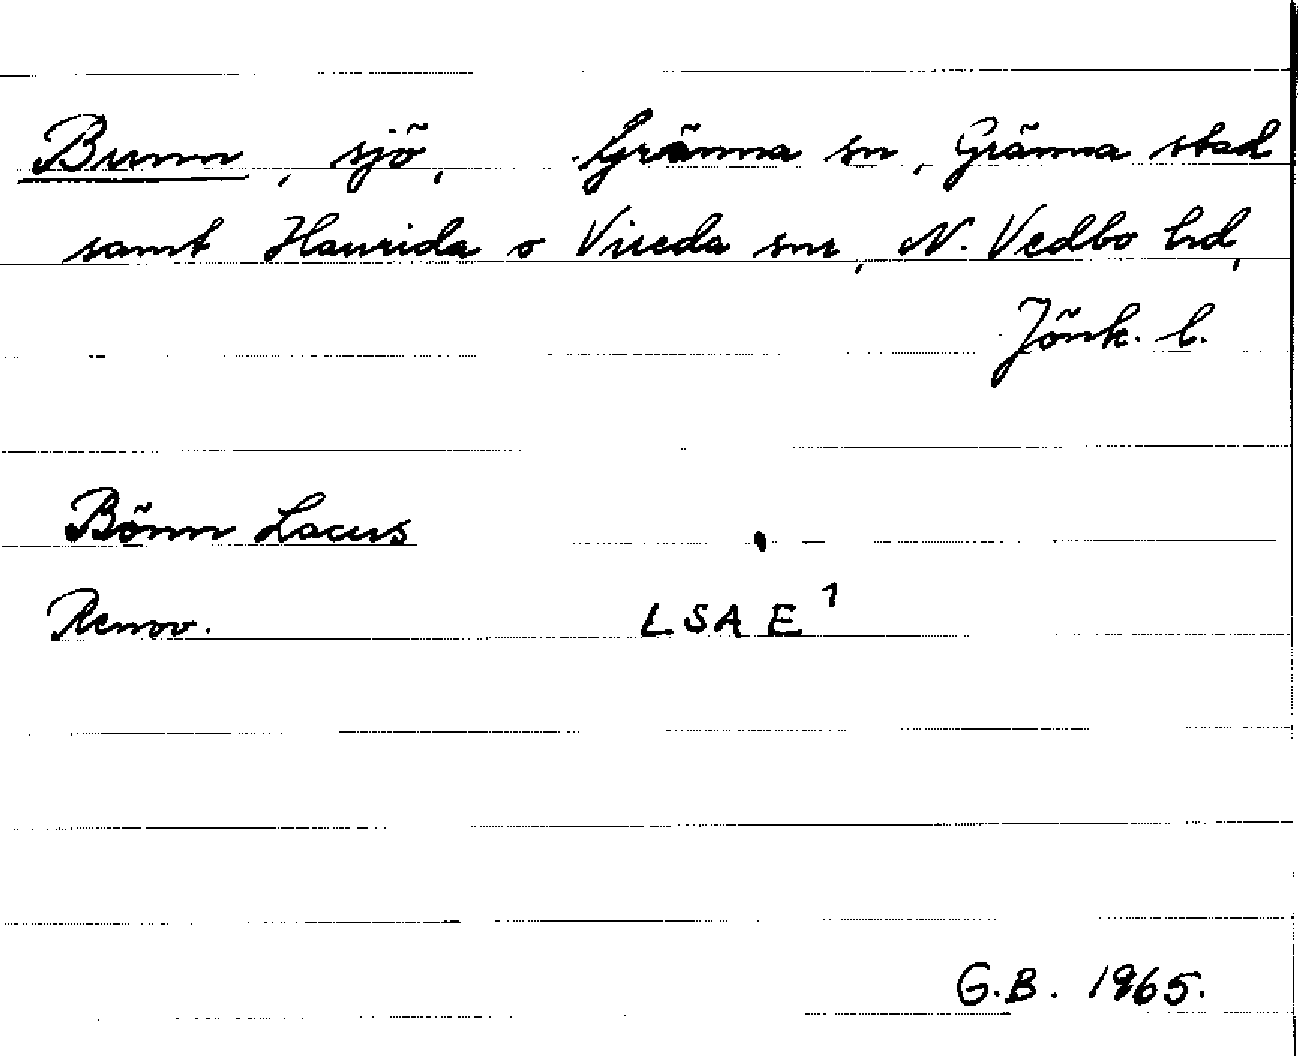 Bunn, sjö, Gränna sn, Gränna stad
samt Haurida o Vireda snr, N. Vedbo hd,
Jönk. l.
Bönn Lacus
Renov. LSA E¹
G.B. 1965.